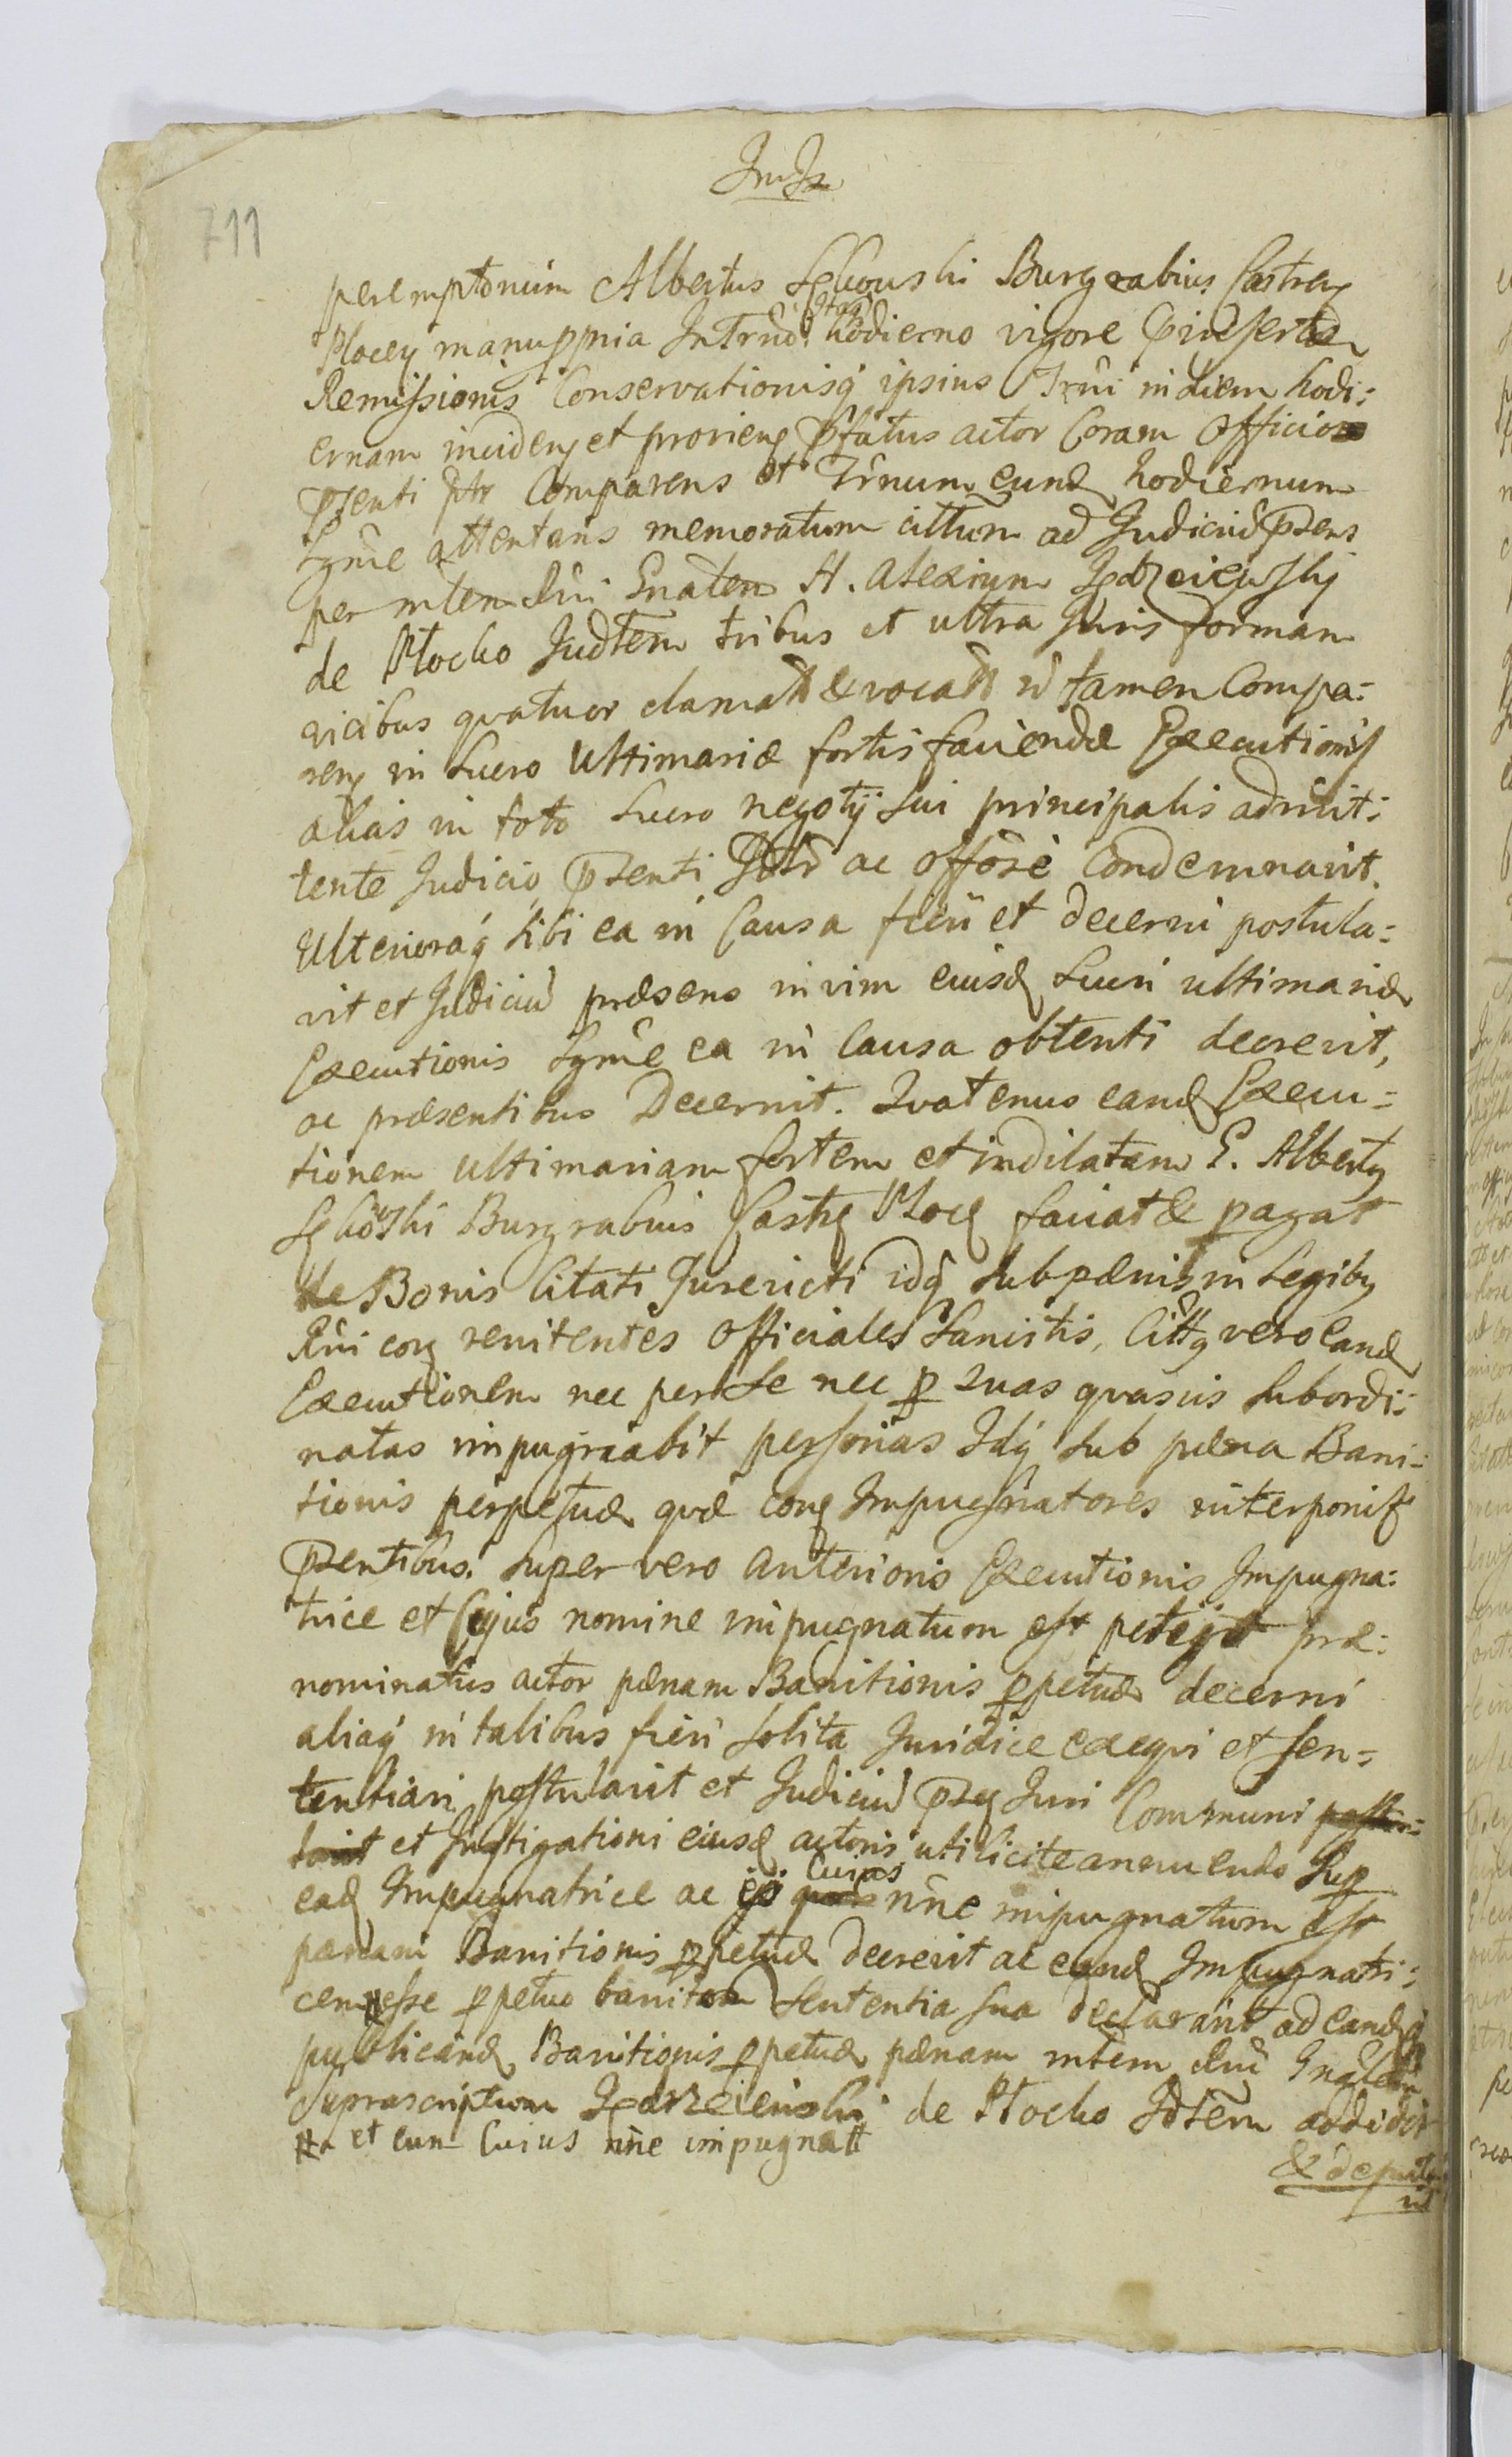 711
peremptorium Albertus Sękowski Burgrabius Castren
Plocen manuppria In Trnō hodierno vigore
Remissionis Conservationisq́ ipsius Trñi in diem hodi:
ernam inciden et provien pfatus actor Coram Officio
pzenti ptr Comparens et Trnum eund hodiernum
Lgmē attentans memoratum cittum ad Judiciū pzens
per mlem Rñi Gnalem H. Alexium
de Plocko Judtem tribus et ultra Juris formam
vicibus quatuor clamatt & vocatt ñ tamen Compa:
ren in Lucro Ultimariæ fortis faciendæ Executionis
alias in toto Lucro negotÿ sui principalis admit:
tente Judicio pzenti Jdlr ac offosē Condemnavit.
Ulterioraq́ sibi ea in Causa fieri et decerni postula:
vit et Judiciū præsens in vim eiusd Lucri ultimariæ
Executionis Lgmē ea in Causa obtenti decrevit,
ac præsentibus Decernit. Quatenus eand Execu=
tionem ultimariam fortem et indilatam G. Albertg
Sękowski Burgrabius Castr Ploc faciat & pagat
de Bonis Citati Jurevicti idq́ sub pænis in Legibg
Rñi con renitentes Officiales Sancitis, Cittg vero eand
Executionem nec per se nec p suas quasvis subordi:
natas impugnabit personas Idq́ sub pæna Bani:
tionis perpetuæ quæ con Impugnatores interponit
pzentibus. Super vero anterioris Executionis Impugna:
trice et Cujus nomine impugnatum est petijt præ:
nominatus actor pænam Banitionis ppetuæ decerni
aliaq́ in talibus fieri solita Juridice exeqvi et sen=
tentiari postulavit et Judiciū pzn Juri Communi
et Instigationi eiusd actoris utilicite annuendo Sup
ead Impugnatrice ac Cuius nñe impugnatum est
pænam Banitionis ppetuæ decrevit ac eand Impugnatri:
cem esse ppetuo banitam Sententia sua declaravit ad eandq́
publicand Banitionis ppetuæ pænam mlem Rñi Gnalem
Suprascriptum de Plocko Jdtem addidit
et eum Cuius nñe impugnatt
& deputa
vit